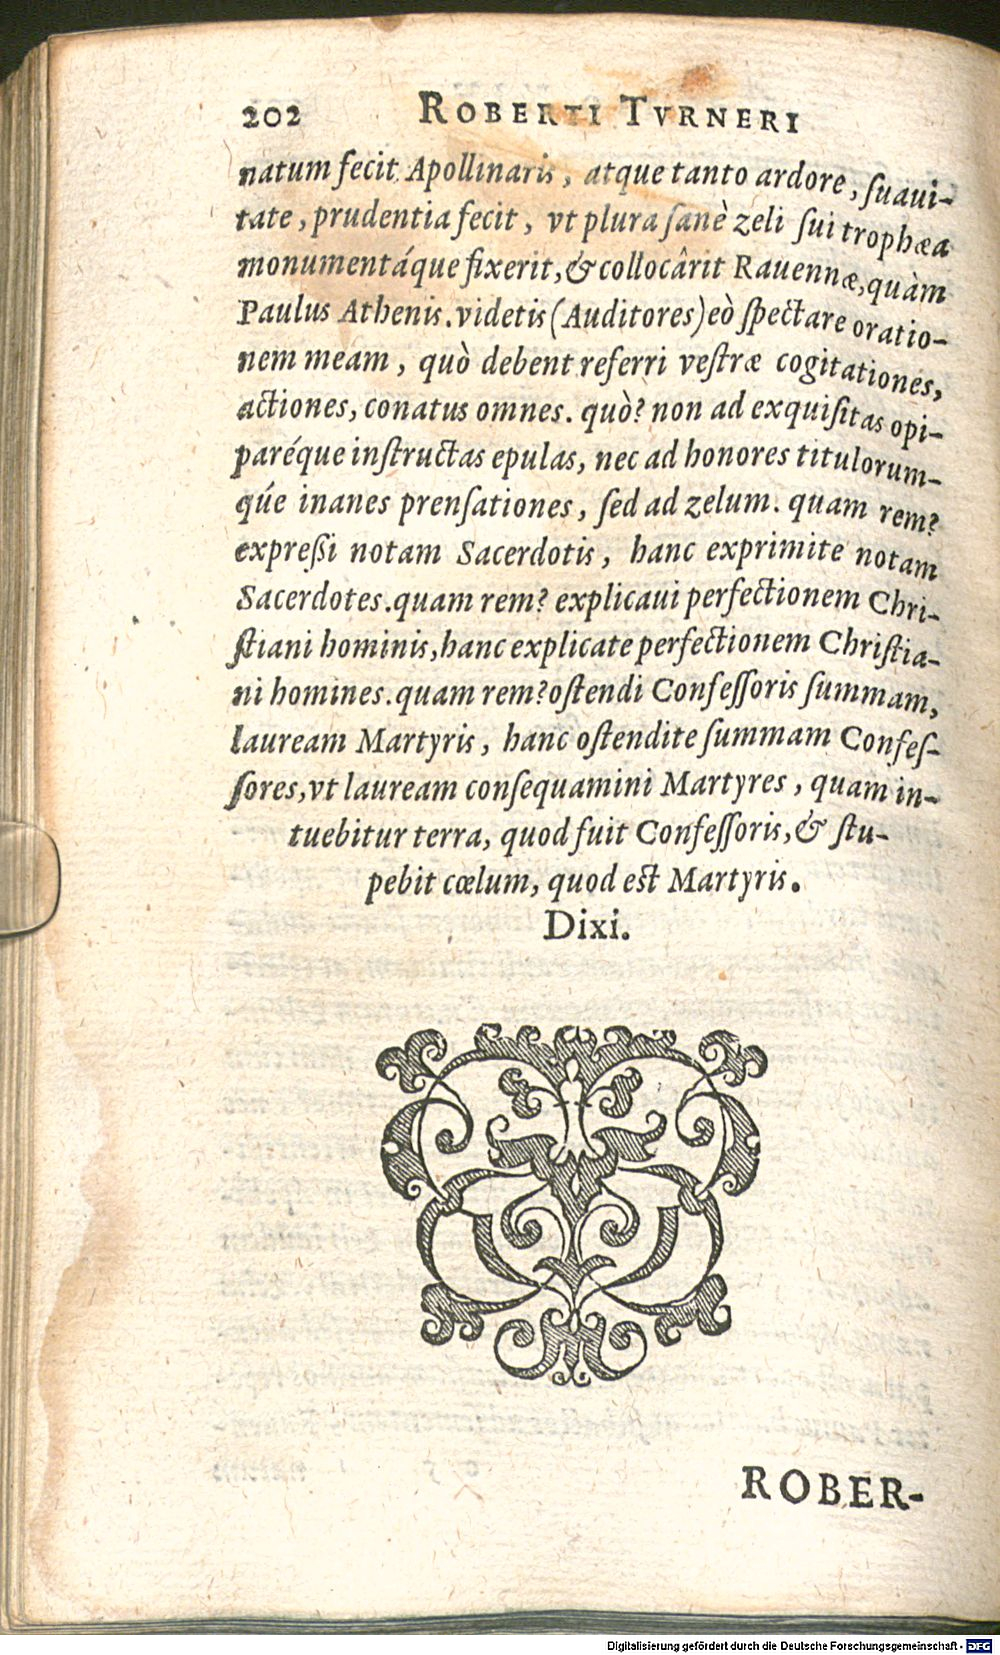 202 ROBERTI TVRNERI
natum fecit Apollinaris, atque tanto ardore, ſuaui-
tate, prudentia fecit, vt plura ſanè zeli ſui trophæa
monumentáque fixerit, & collocârit Rauennæ, quàm
Paulus Athenis. videtis (Auditores) eò ſpectare oratio-
nem meam, quò debent referri veſtræ cogitationes,
actiones, conatus omnes. quò? non ad exquiſitas opi-
paréque inſtructas epulas, nec ad honores titulorum-
qúe inanes prenſationes, ſed ad zelum. quam rem?
expreßi notam Sacerdotis, hanc exprimite notam
Sacerdotes. quam rem? explicaui perfectionem Chri-
ſtiani hominis, hanc explicate perfectionem Chriſtia-
ni homines. quam rem? oſtendi Confeſſoris ſummam,
lauream Martyris, hanc oſtendite ſummam Confeſ-
ſores, vt lauream conſequamini Martyres, quam in-
tuebitur terra, quod fuit Confeſſoris, & ſtu-
pebit cœlum, quod est Martyris.
Dixi.
ROBER-
Digitalisierung gefördert durch die Deutsche Forschungsgemeinschaft - DFG